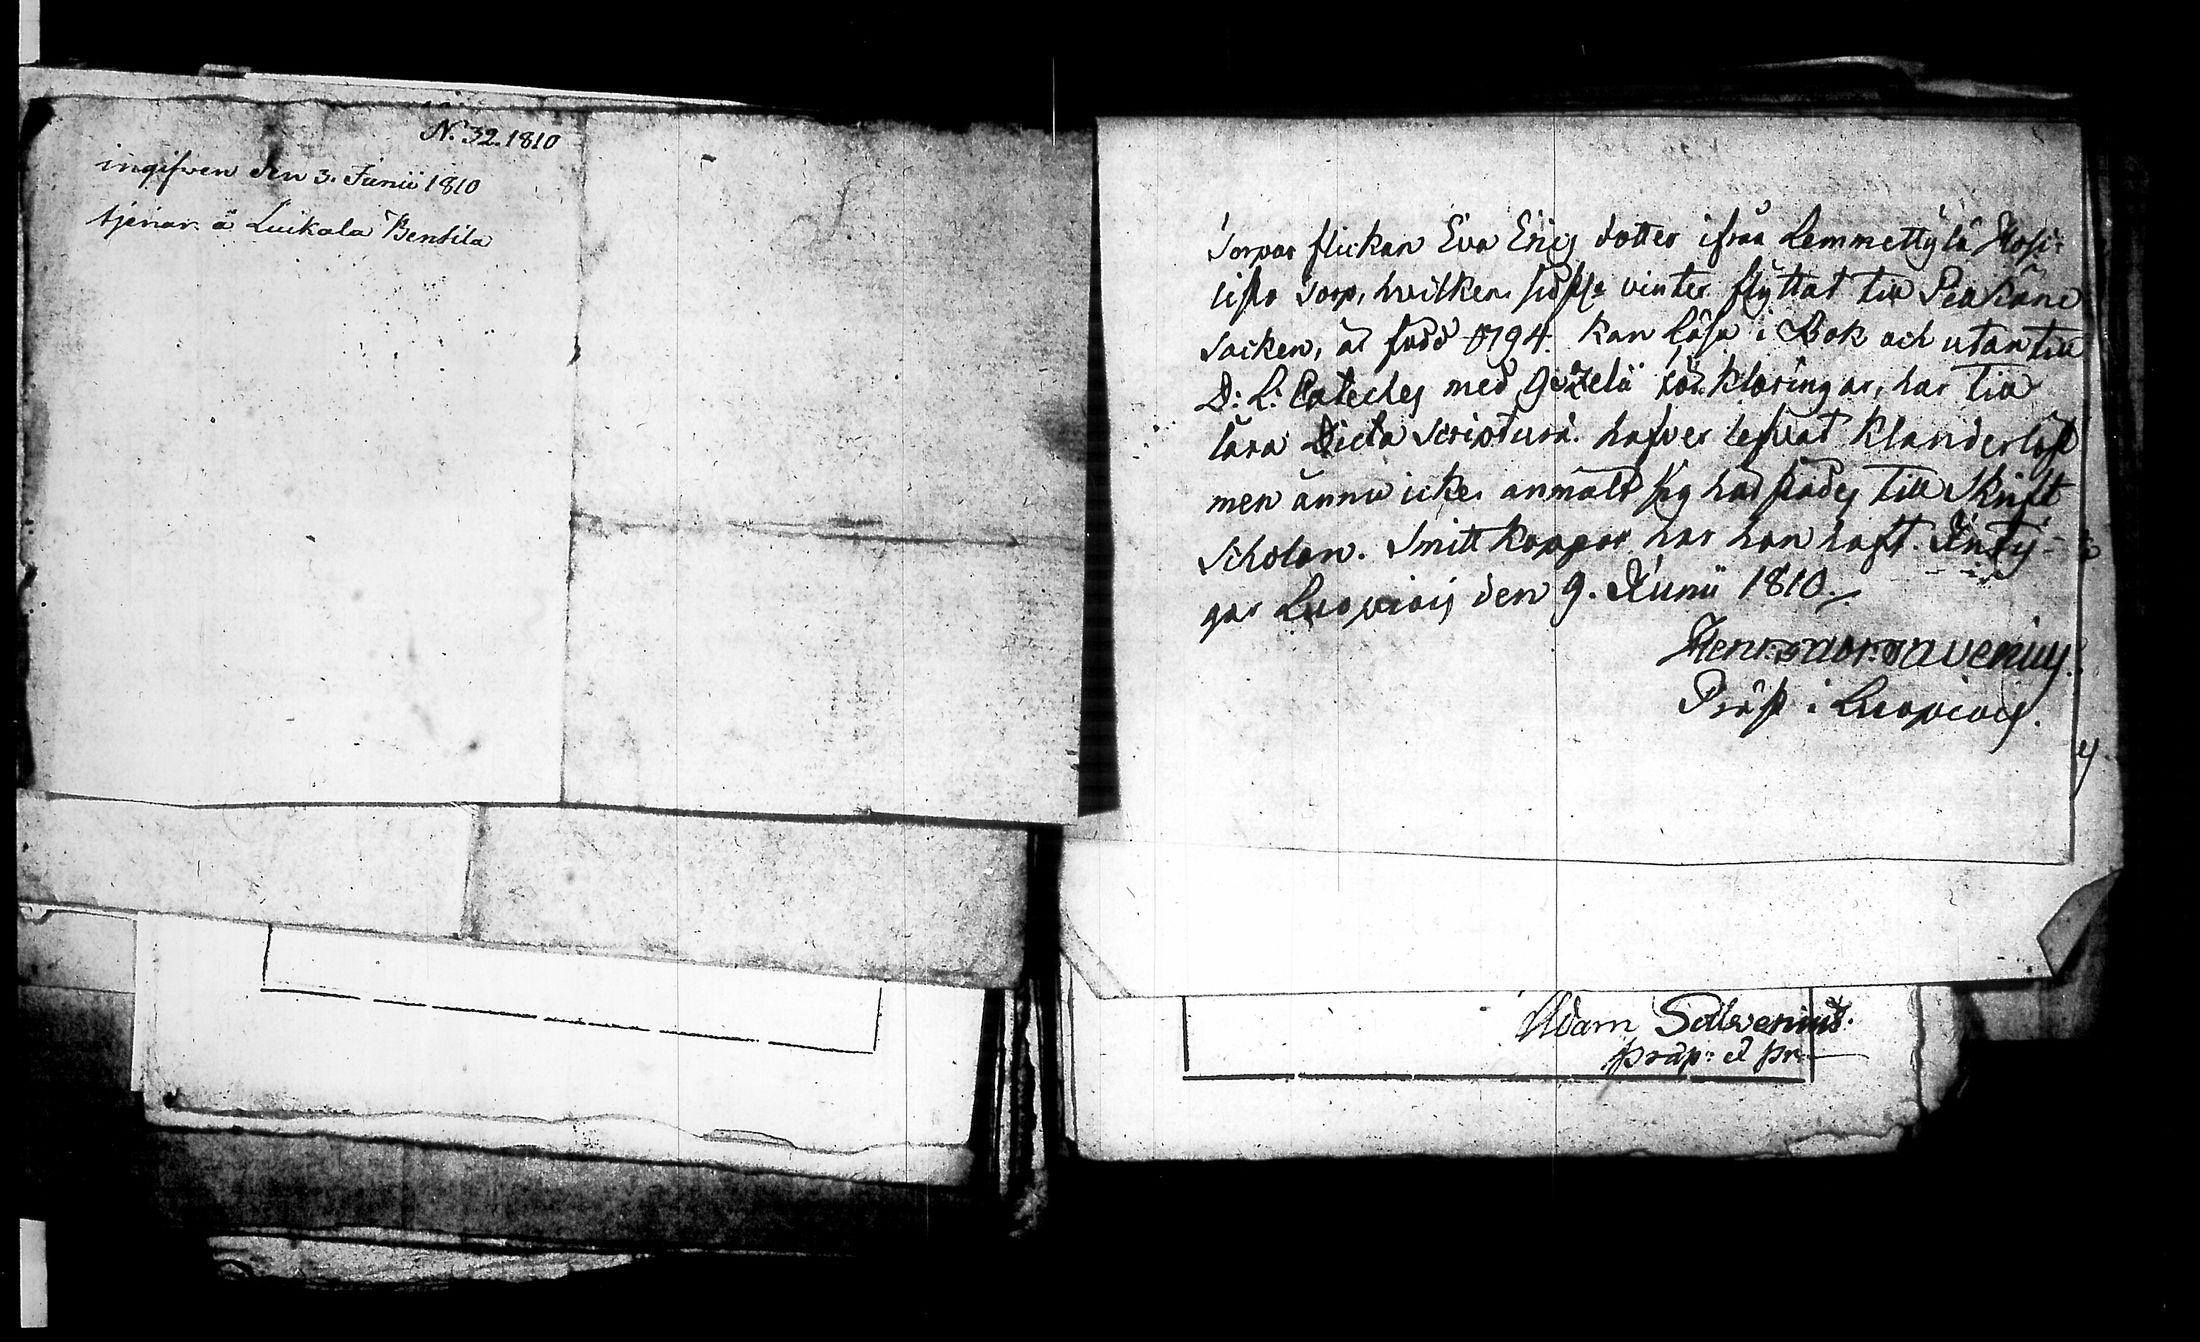 N. 32. 1810
ingifven den 3. Junii 1810
tjenar å Luikala Bentila
Torpar flickan Eva Erics dotter ifrån Lemmettylä
torp, hvilken sidste vinter flyttat till Pelkäne
Socken, är född 1794. kan läsa i Bok och utantill
D: L: Cateches med Gezelii förklaringar, har till
lära Dicta Scripturæ. hafver lefvat klanderlöst
men ännu icke anmält sig har städes till Skrift
Scholan. Smitt koppor har hon haft. Inty-
gar Luopiois den 9. Junii 1810.
Præst i Luopiois.
Adam Salvenius.
præp: et pr.